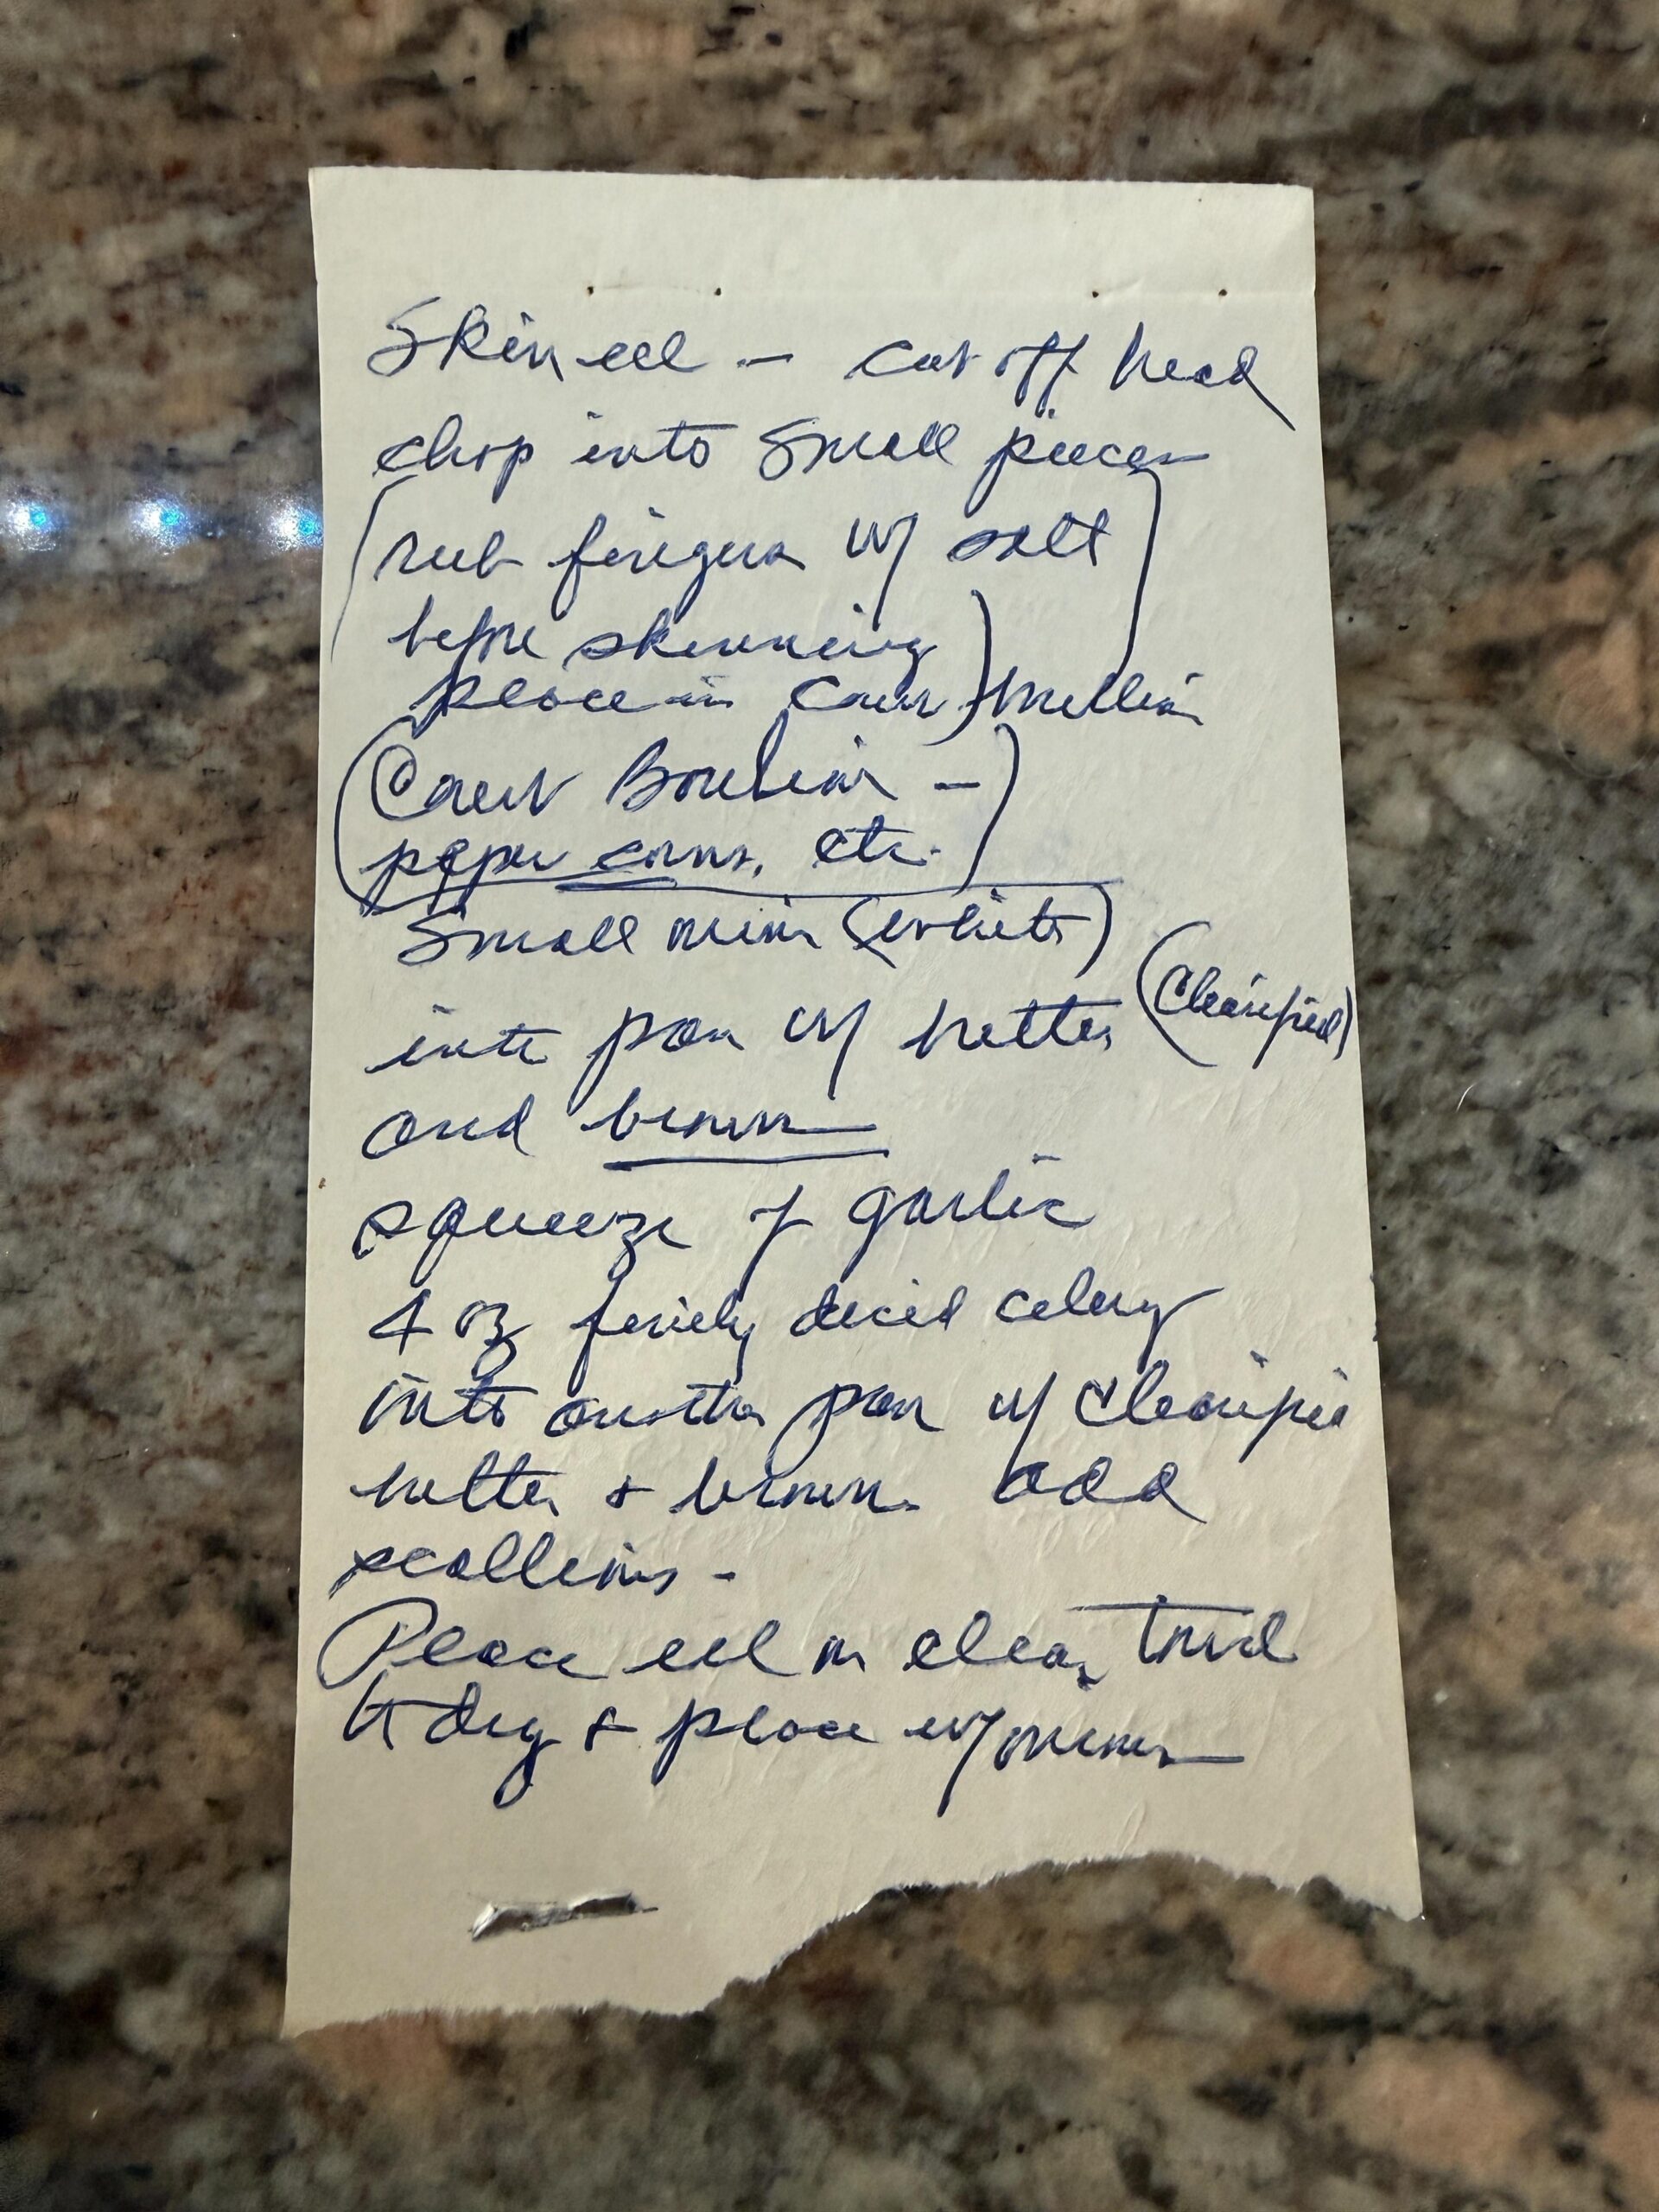 Skin eel - cut off head
chop into small pieces
(rub fingers w/ salt
before skinning)
place in Court Bullion
(Court Boulion -
pepper corns, etc.)
Small onions (white)
into pan w/ butter (Clarified)
and brown
squeeze of garlic
4 oz finely diced celery
into another pan w/ clarified
butter & brown. Add
scallions -
Place eel on clean towel
to dry & place w/ onions